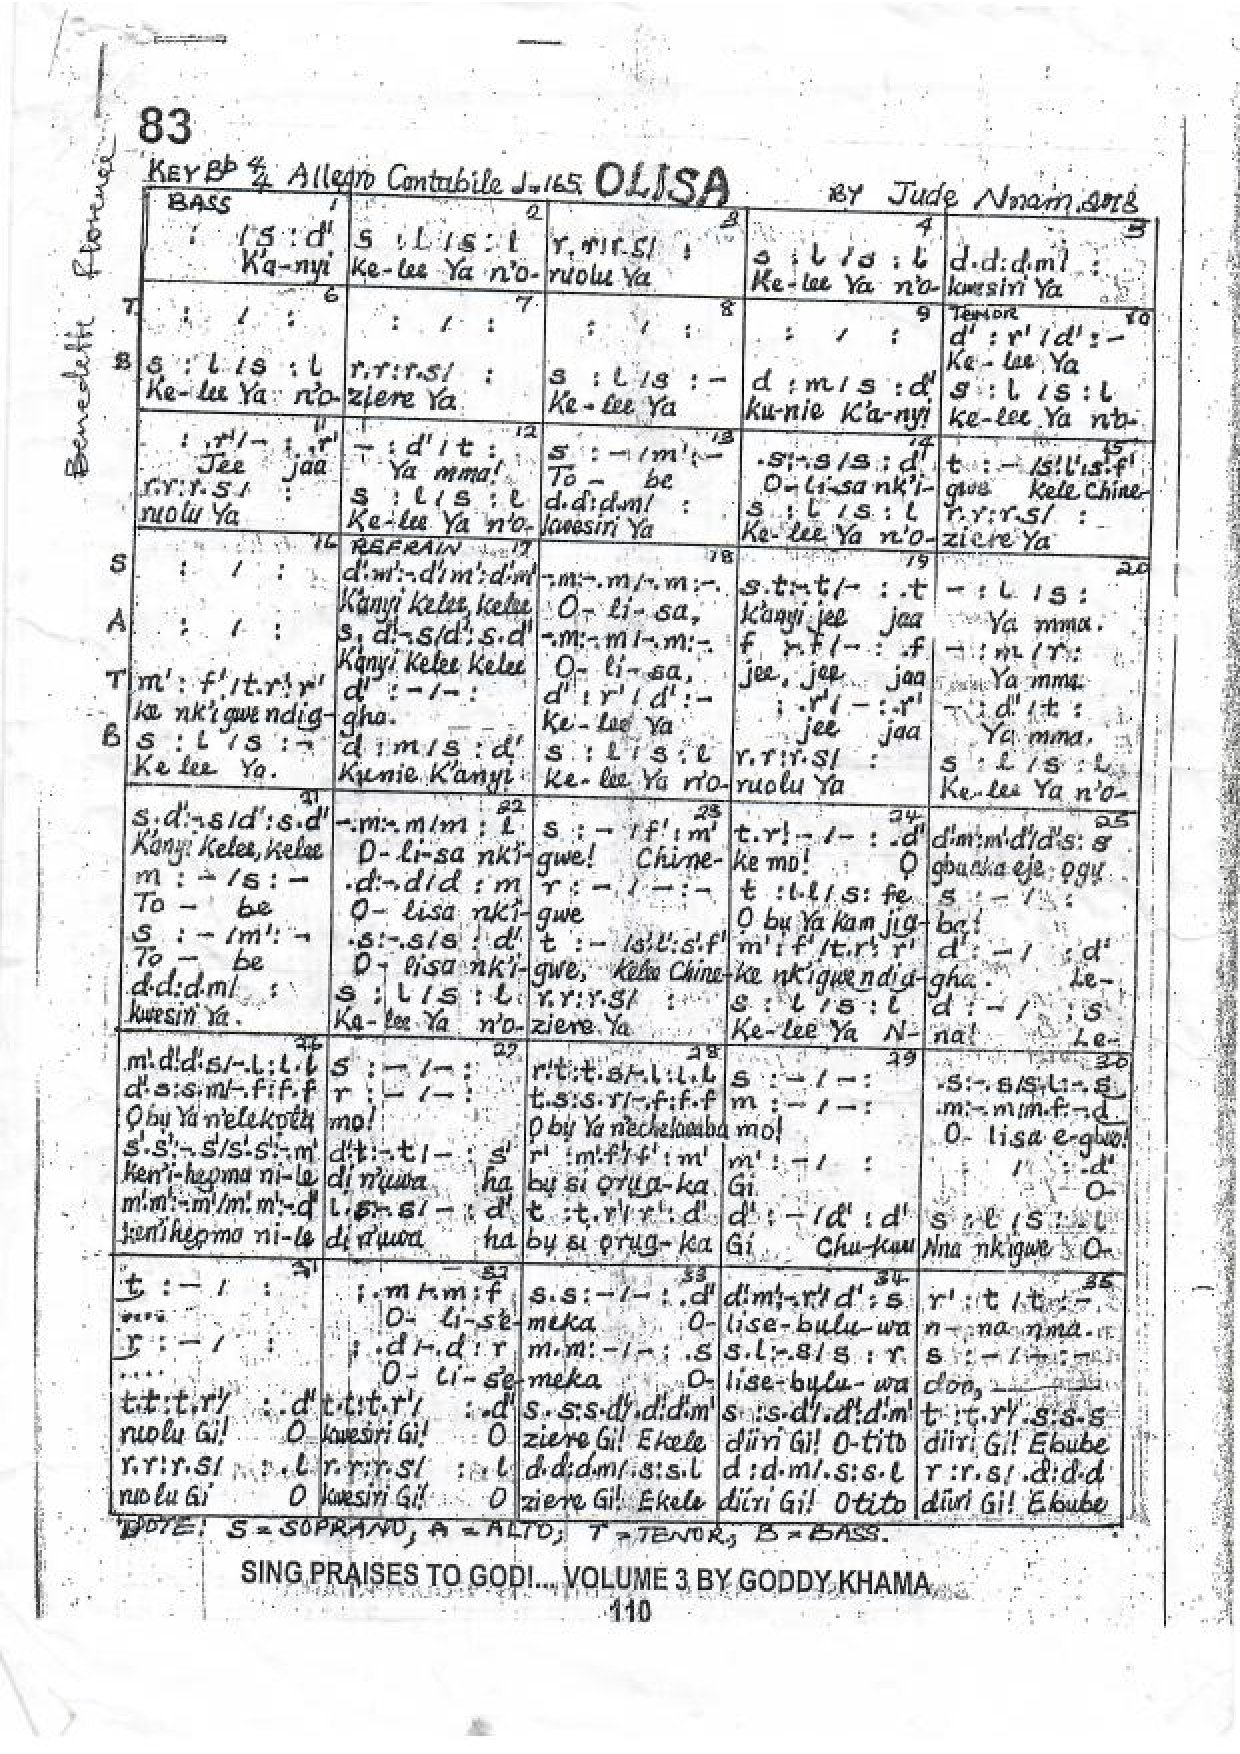 83
Benedette Florence
KEY Bb 4/4 Allegro Contabile ♩=165. OLISA BY Jude Nnam, 2018
BASS 1 2 3 4 5
: / s : d' s : l / s : l r.r:r.s/ : s : l / s : l d.d:d.m/ :
K'a-nyi Ke-lee Ya n'o- ruolu Ya Ke-lee Ya n'o- kwesiri Ya
6 7 8 9 TENOR 10
T : / : : / : : / : : / : d' : r' / d' : -
Ke-lee Ya
B s : l / s : l r.r:r.s/ : s : l / s : - d : m / s : d' s : l / s : l
Ke-lee Ya n'o- ziere Ya Ke-lee Ya ku-nie K'a-nyi Ke-lee Ya n'o-
11 12 13 14 15
: .r'/- : .r' - : d' / t : s : - / m' : - .s:-.s/s : d' t : - /s'.l':s'.f'
Jee jaa Ya mma! To - be O-li-sa nk'i- gwe Kele Chine-
r.r:r.s/ : s : l / s : l d.d:d.m/ : s : l / s : l r.r:r.s/ :
ruolu Ya Ke-lee Ya n'o- kwesiri Ya Ke-lee Ya n'o- ziere Ya
16 REFRAIN 17 18 19 20
S : / : d'.m':-.d'/m':d'.m' -.m:-.m/-.m:-. s.t:-.t/- : .t - : l / s :
K'anyi Kelee, Kelee O-li-sa, K'anyi jee jaa Ya mma.
A : / : s.d':-.s/d':s.d' -.m:-.m/-.m:-. f .f/- : .f - : m / r :
K'anyi Kelee Kelee O-li-sa, jee, jee jaa Ya mma
T m' : f'/t.r':r' d' : - / - : d' : r' / d' : - : .r'/- : .r' - : d' / t :
ke nk'igwe ndig- gha. Ke-lee Ya jee jaa Ya mma.
B s : l / s : - d : m / s : d' s : l / s : l r.r:r.s/ : s : l / s : l
Ke lee Ya. Kunie K'anyi Ke-lee Ya n'o- ruolu Ya Ke-lee Ya n'o-
21 22 23 24 25
s.d':-.s/d':s.d' -.m:-.m/m : l s : - / f' : m' t.r':-/- : .d' d'.m':m'.d'/d's: s
K'anyi Kelee, Kelee O-li-sa nk'i- gwe! Chine- ke mo! O gbaaka eje ogu
m : - / s : - .d:-.d/d : m r : - / - : - t : l.l / s : fe s : - / :
To - be O- lisa nk'i- gwe O bu Ya kam jig- ba!
s : - / m' : - .s:-.s/s : d' t : - /s'.l':s'.f' m' : f'/t.r':r' d' : - / : d'
To - be O- lisa nk'i- gwe, Kelee Chine- ke nk'igwe ndig- gha. Le-
d.d:d.m/ : s : l / s : l r.r:r.s/ : s : l / s : l d : - / : s
kwesiri Ya. Ke-lee Ya n'o- ziere Ya Ke-lee Ya N- na! Le-
26 27 28 29 30
m'.d':d'.s/-.l:l.l s : - / - : r'.t:t.s/-.l:l.l s : - / - : .s:-.s/s.l:-.s
d'.s:s.m/-.f:f.f r : - / - : t.s:s.r/-.f:f.f m : - / - : .m:-.m/m.f:-.d
O bu Ya n'elekota mo! O bu Ya n'echekwaba mo! O- lisa e-gbuo!
s'.s':-.s'/s'.s':-.m' d'.t:-.t/- : s' r' :m'.f'/f' : m' m' : - / : : / : .d'
ken'i-heoma ni-le di n'uwa ha bu si orug-ka Gi O-
m'.m':-.m'/m'.m':-.d' l.s:-.s/- : d' t :t.r'/r' : d' d' : - / d' : d' s : l / s : .l
ken'iheoma ni-le di n'uwa ha bu si orug-ka Gi Chu-kwu Nna nkigwe O-
31 32 33 34 35
t : - / : : .m/-.m:f s.s:-/- : .d' d'.m':-.r'/d' : s r' : t / t : -
.... O- li-s'e- meka O- lise-bulu-wa n- na nma.
r : - / : : .d/-.d:r m.m:-/- : .s s.l:-.s/s : r s : - / - : -
.... O- li-s'e- meka O- lise-bulu-wa doo,
t.t:t.r'/ : .d' t.t:t.r'/ : .d' s.s:s.d'/.d':d'.m' s :s.d'/.d':d'.m' t :t.r'/.s:s.s
ruolu Gi! O kwesiri Gi! O ziere Gi! Ekele diiri Gi! O-tito diiri Gi! Ebube
r.r:r.s/ : .l r.r:r.s/ : .l d.d:d.m/.s:s.l d :d.m/.s:s.l r :r.s/.d:d.d
ruolu Gi O kwesiri Gi! O ziere Gi! Ekele diiri Gi! Otito diiri Gi! Ebube
NOTE: S = SOPRANO, A = ALTO; T = TENOR, B = BASS.
SING PRAISES TO GOD!... VOLUME 3 BY GODDY KHAMA
110